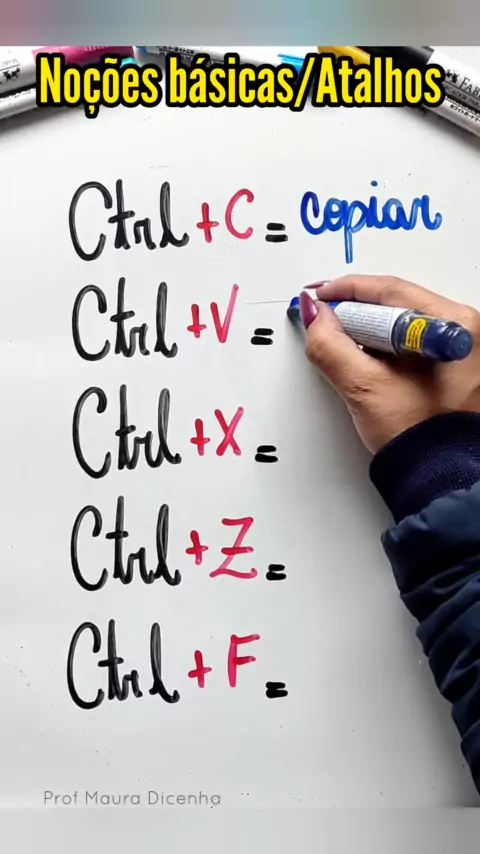 Noções básicas/Atalhos
Ctrl + C = copiar
Ctrl + V =
Ctrl + X =
Ctrl + Z =
Ctrl + F =
Prof Maura Dicenha